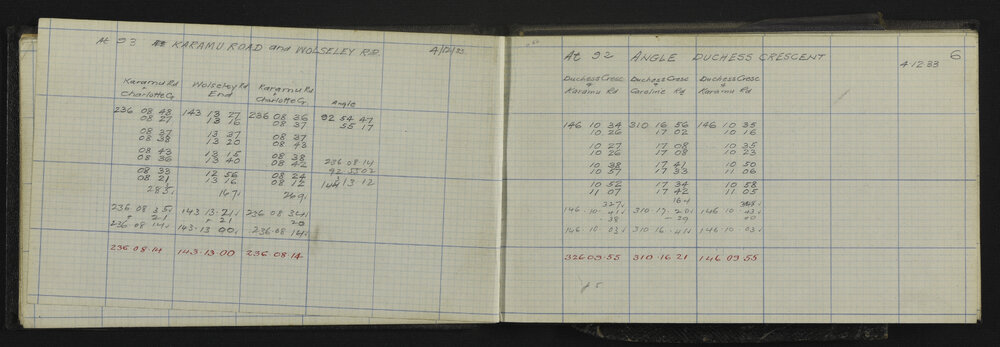 At 93 KARAMU ROAD and WOLSELEY RD 4/12/33
Karamu Rd Wolseley Rd Karamu Rd
Charlotte Cr End Charlotte Cr Angle
236 08 48 143 13 27 236 08 36 92 54 47
08 27 13 16 08 37 55 17
08 37 13 37 08 37
08 38 13 20 08 43
08 43 13 15 08 38
08 36 13 40 08 42 236 08 14
08 33 12 56 08 24 92 55 02
08 21 13 16 08 12 144 13 12
283 167 269
236 08 35 143 13 21 236 08 34
21 21 20
236 08 14 143 13 00 236 08 14
236 08 14 143 13 00 236 08 14
At 92 ANGLE DUCHESS CRESCENT 6
4 12 33
Duchess Cresc Duchess Cresc Duchess Cresc
Karamu Rd Caroline Rd Karamu Rd
146 10 34 310 16 56 146 10 35
10 26 17 02 10 16
10 27 17 08 10 35
10 26 17 08 10 23
10 38 17 41 10 50
10 57 17 33 11 06
10 52 17 34 10 58
11 07 17 42 11 05
327 164
146 10 41 310 17 20 146 10 43
38 39 40
146 10 03 310 16 41 146 10 03
326 09 55 310 16 21 146 09 55